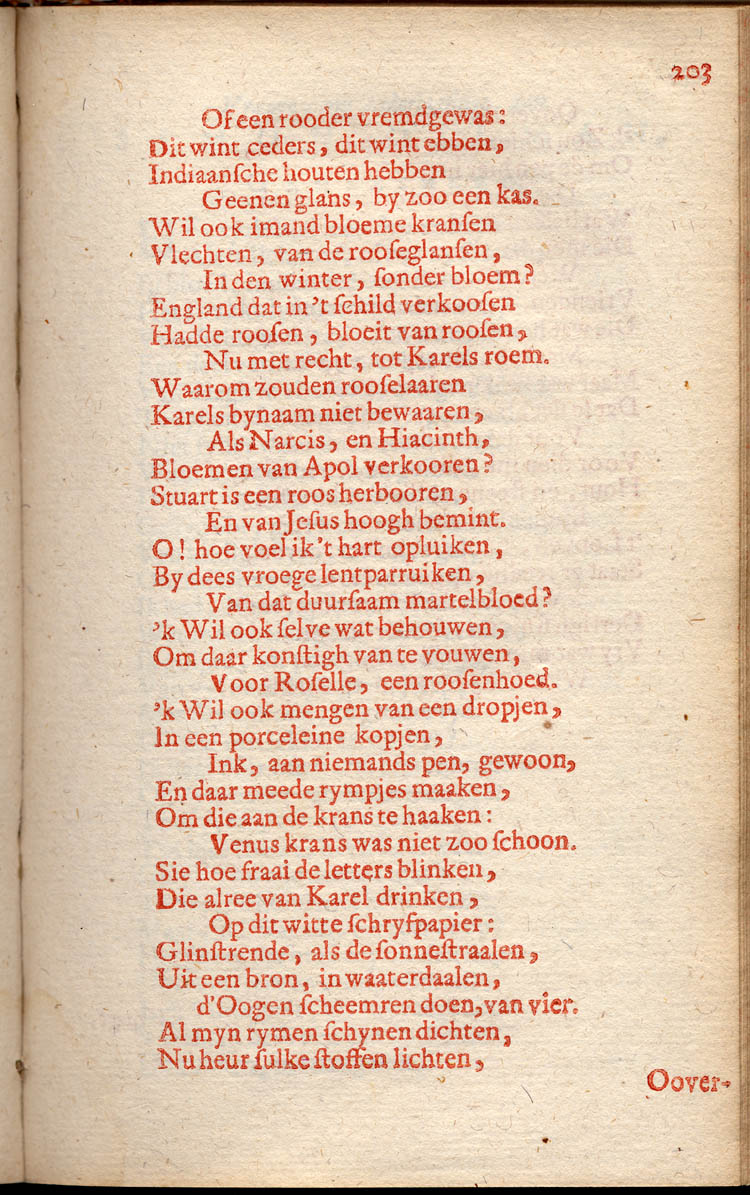 203
Of een rooder vremdgewas:
Dit wint ceders, dit wint ebben,
Indiaanſche houten hebben
Geenen glans, by zoo een kas.
Wil ook imand bloeme kranſen
Vlechten, van de rooſeglanſen,
In den winter, ſonder bloem?
England dat in 't ſchild verkooſen
Hadde rooſen, bloeit van rooſen,
Nu met recht, tot Karels roem.
Waarom zouden rooſelaaren
Karels bynaam niet bewaaren,
Als Narcis, en Hiacinth,
Bloemen van Apol verkooren?
Stuart is een roos herbooren,
En van Jeſus hoogh bemint.
O! hoe voel ik 't hart opluiken,
By dees vroege lentparruiken,
Van dat duurſaam martelbloed?
'k Wil ook ſelve wat behouwen,
Om daar konſtigh van te vouwen,
Voor Roſelle, een rooſenhoed.
'k Wil ook mengen van een dropjen,
In een porceleine kopjen,
Ink, aan niemands pen, gewoon,
En daar meede rympjes maaken,
Om die aan de krans te haaken:
Venus krans was niet zoo ſchoon.
Sie hoe fraai de letters blinken,
Die alree van Karel drinken,
Op dit witte ſchryfpapier:
Glinſtrende, als de ſonneſtraalen,
Uit een bron, in waaterdaalen,
d'Oogen ſcheemren doen, van vier.
Al myn rymen ſchynen dichten,
Nu heur ſulke ſtoffen lichten,
Oover-